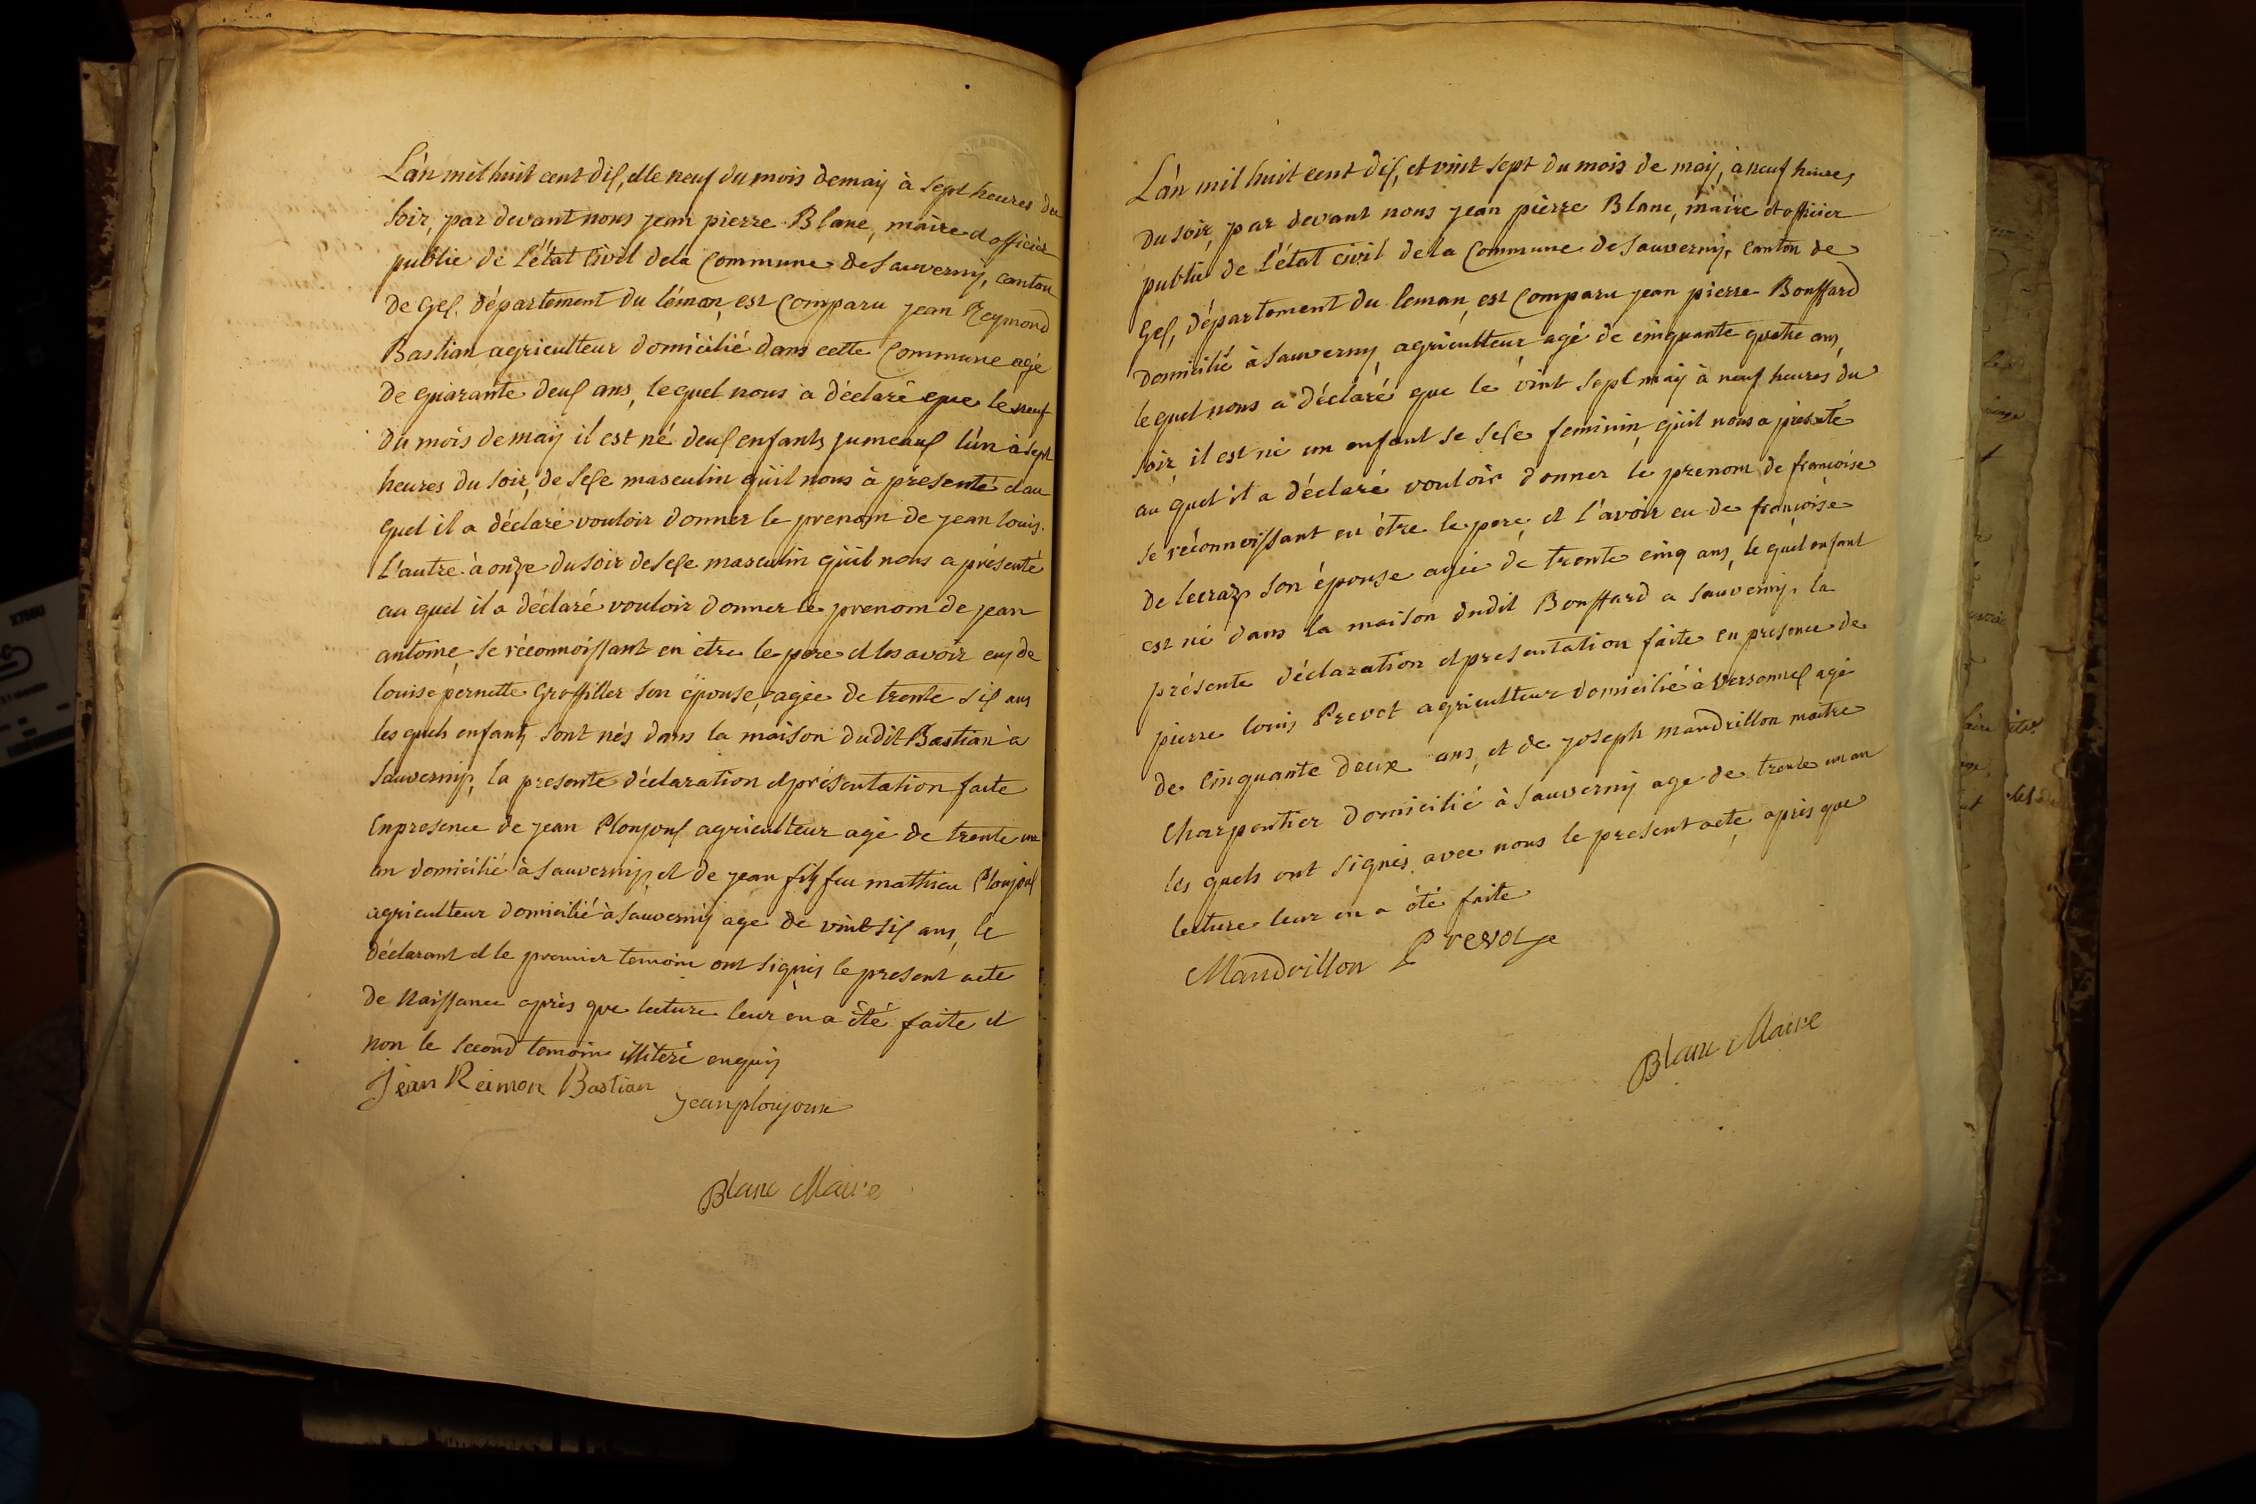 L'an mil huit cent dix, et le neuf du mois de may à sept heures du
soir, par devant nous jean pierre Blanc, maire et officier
public de l'état civil de la Commune de Sauverny, canton
de Gex, département du léman, est comparu jean Reymond
Bastian agriculteur domicilié dans cette Commune agé
de quarante deux ans, lequel nous a déclaré que le neuf
du mois de may il est né deux enfants jumeaux l'un à sept
heures du soir, de sexe masculin qu'il nous à présenté et au
quel il a déclaré vouloir donner le prenom de jean louis.
L'autre à onze du soir de sexe masculin qu'il nous a présenté
au quel il a déclaré vouloir donner le prenom de jean
antoine, se réconnoissant en être le pere et les avoir eus de
louise pernette Grosfiller son épouse, agée de trente six ans
les quels enfants sont nés dans la maison dudit Bastian à
Sauverny, la presente déclaration et présentation faite
En presence de jean Ploujoux agriculteur agé de trente un
an domicilié à Sauverny, et de jean fils feu mathieu Ploujoux
agriculteur domicilié à Sauverny age de vint six ans, le
déclarant et le premier temoin ont signés le present acte
de Naissance après que lecture leur en a été faite et
non le second temoin illiteré enquis
Jean Reimon Bastian
jean ploujoux
Blanc Maire
L'an mil huit cent dix, et vint sept du mois de may, à neuf heures
du soir, par devant nous jean pierre Blanc, maire et officier
public de l'état civil de la Commune de Sauverny, canton de
Gex, département du leman, est comparu jean pierre Bouffard
domicilié à Sauverny agriculteur agé de cinquante quatre ans,
le quel nous a déclaré que le vint sept may à neuf heures du
soir, il est né un enfant de sexe feminin, qu'il nous a présenté
au quel il a déclaré vouloir donner le prenom de françoise
se réconnoissant en être le pere, et l'avoir eu de françoise
de lecraz son épouse agée de trente cinq ans, le quel enfant
est né dans la maison dudit Bouffard a Sauverny, la
présente déclaration et presentation faite en presence de
pierre louis Prevot agriculteur domicilié à Versonnex agé
de Cinquante deux ans, et de joseph mandrillon maitre
Charpentier domicilié à Sauverny age de trente un an
les quels ont signés avec nous le present acte après que
lecture leur en a été faite
Mandrillon Prevot
Blanc Maire